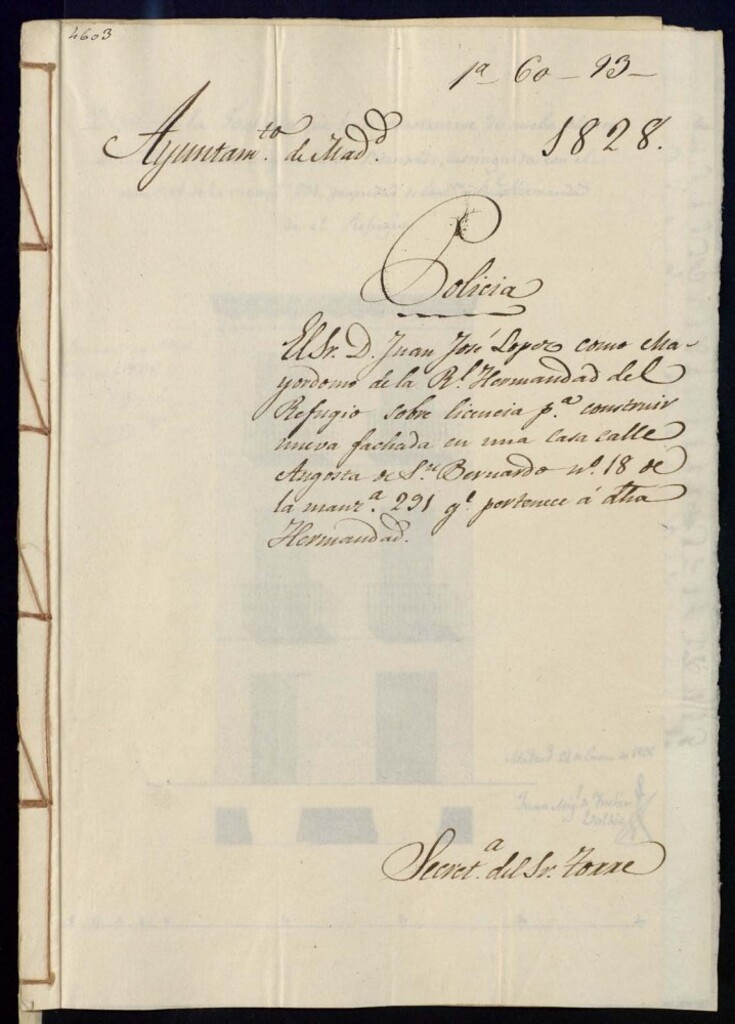 4603
1ª 60-93-
Ayuntam.to de Mad.d 1828.
Policia
El Sr. D. Juan José Lopez como Ma-
yordomo de la Rl. Hermandad del
Refugio sobre licencia p.ª construir
nueva fachada en una casa calle
Angosta de Sn. Bernardo nº. 18 de
la manz.ª 291 q.e pertenece á dha
Hermandad.
Secret.ª del Sr. Torre